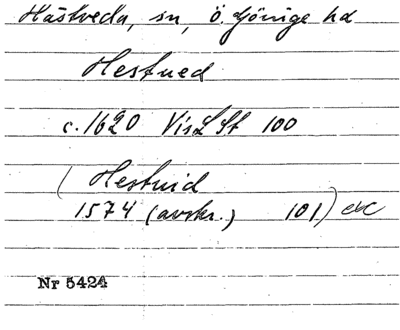 Hästveda, sn, Ö. Göinge hd
Hestued
c. 1620 VisLSt 100
(Hestuid
1574 (avskr.) 101) etc
Nr 5424